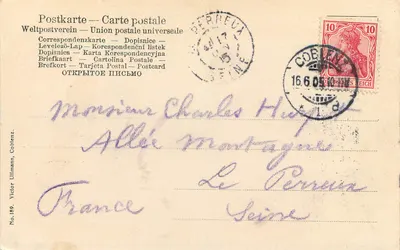 Postkarte — Carte postale
Weltpostverein — Union postale universelle
Correspondenzkarte — Dopisnice —
Levelező-Lap — Korespondenční lístek
Dopisnica — Karta Korespondencyjna
Briefkaart — Cartolina Postale —
Brefkort — Tarjeta Postal — Postcard
ОТКРЫТОЕ ПИСЬМО
PERREUX
17
SEINE
COBLENZ
16.6.05.10-11V.
* 1 d
10 10
REICH
Monsieur Charles
Allée Montagne
Le Perreux
France Seine
No. 180. Victor Ullmann, Coblenz.